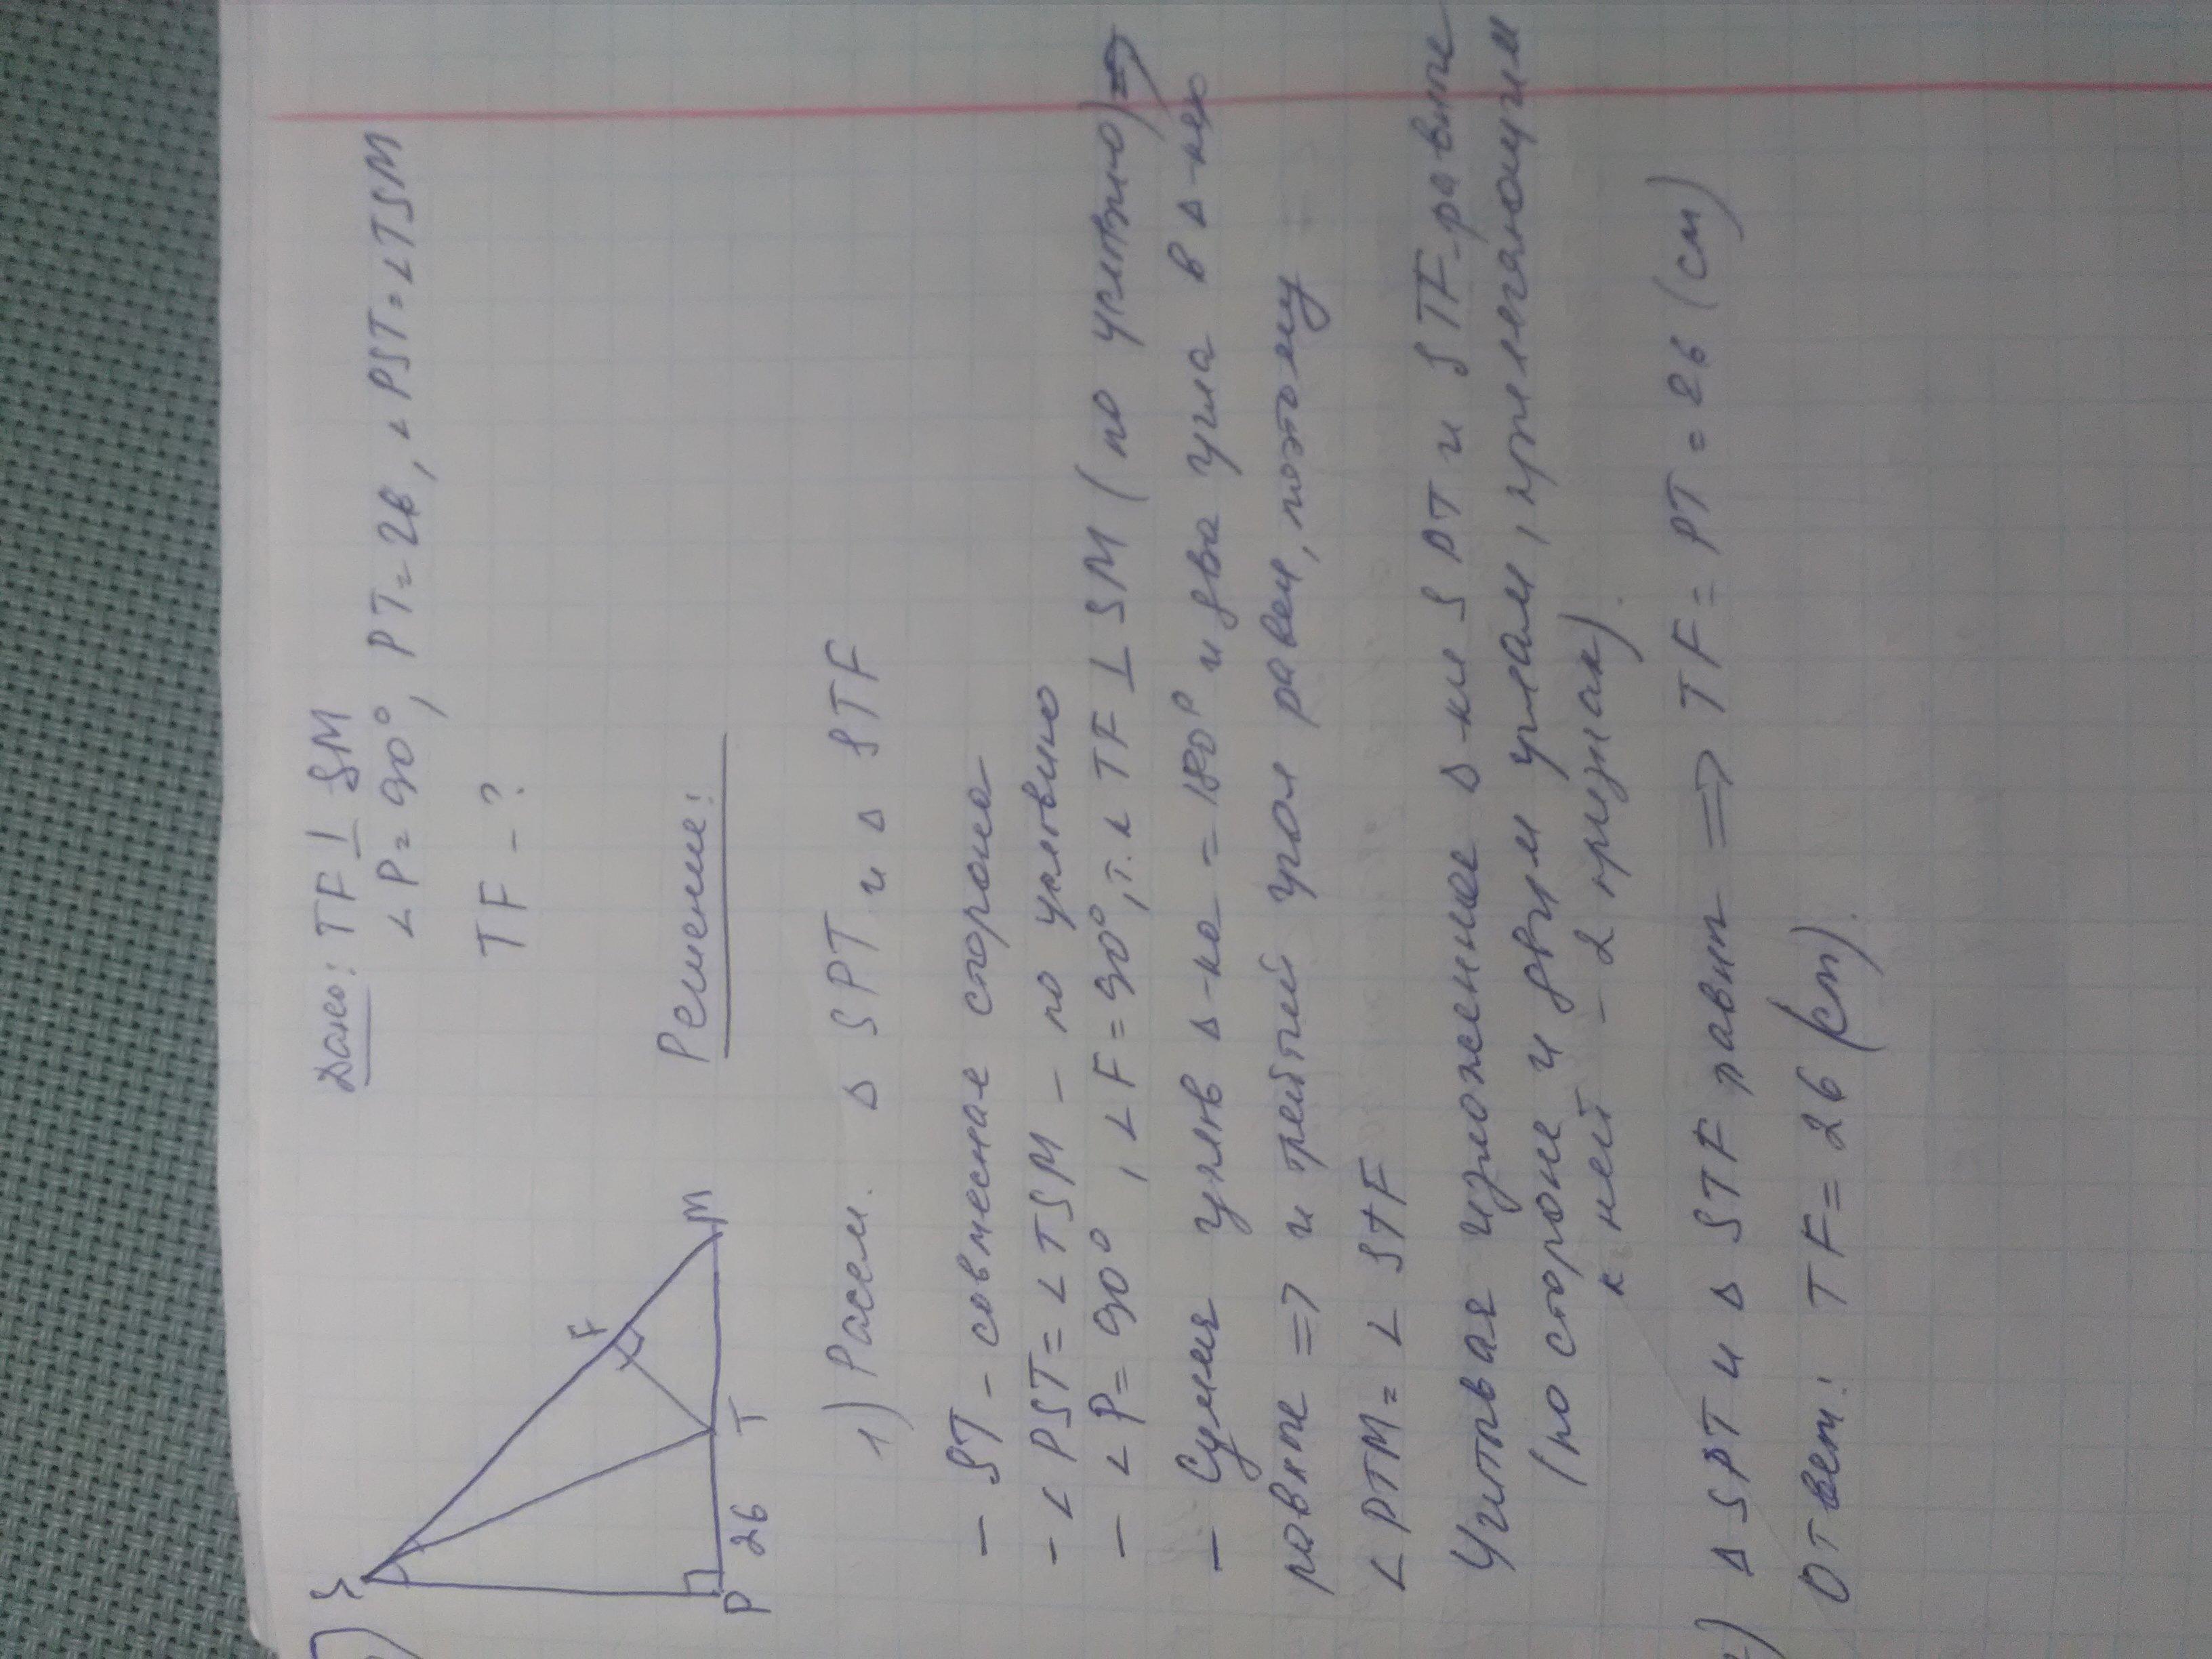 S
F
P 26 T M
Дано: TF ⊥ SM
∠P = 90°, PT = 26, ∠PST = ∠TSM
TF - ?
Решение:
1) Рассм. Δ SPT и Δ STF
- ST - совместная сторона
- ∠PST = ∠TSM - по условию
- ∠P = 90°, ∠F = 90°, т.к TF ⊥ SM (по условию) ⇒
- Сумма углов Δ-ка = 180° и два угла в Δ-ке
равны ⇒ и третий угол равен, поэтому
∠PTM = ∠STF
Учитывая изложенное Δ-ки SPT и STF - равны
(по стороне и двум углам, прилегающим
к ней - 2 признак).
2) Δ SPT и Δ STF равны ⇒ TF = PT = 26 (см)
Ответ: TF = 26 (см).